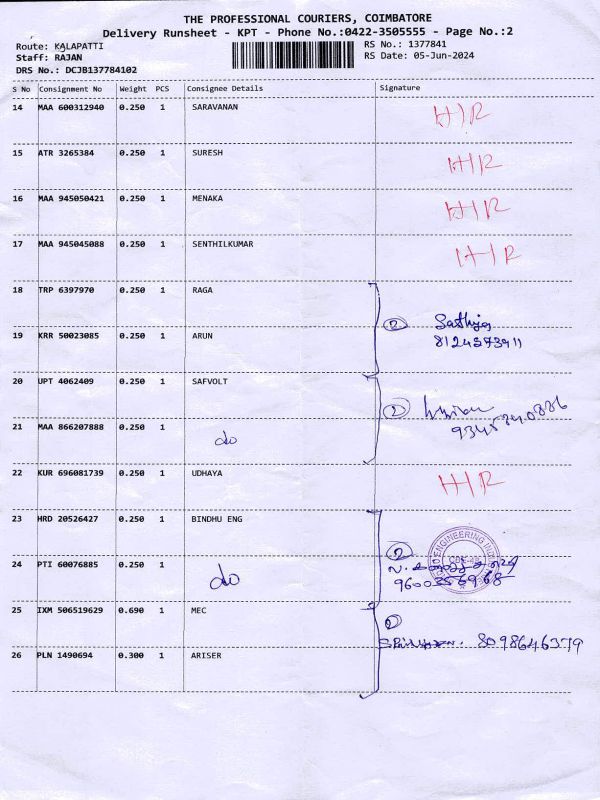 THE PROFESSIONAL COURIERS, COIMBATORE
Delivery Runsheet - KPT - Phone No.:0422-3505555 - Page No.:2
Route: KALAPATTI
RS No.: 1377841
Staff: RAJAN
RS Date: 05-Jun-2024
DRS No.: DCJB137784102
S No Consignment No Weight PCS Consignee Details Signature
14 MAA 600312940 0.250 1 SARAVANAN H/R
15 ATR 3265384 0.250 1 SURESH H/R
16 MAA 945050421 0.250 1 MENAKA H/R
17 MAA 945045088 0.250 1 SENTHILKUMAR H/R
18 TRP 6397970 0.250 1 RAGA
2 Sathiya
8124573911
19 KRR 50023085 0.250 1 ARUN
20 UPT 4062409 0.250 1 SAFVOLT
2
21 MAA 866207888 0.250 1 do
22 KUR 696081739 0.250 1 UDHAYA H/R
23 HRD 20526427 0.250 1 BINDHU ENG
2
ENGINEERING
24 PTI 60076885 0.250 1 do
9600356968
25 IXM 506519629 0.690 1 MEC
2
8098646379
26 PLN 1490694 0.300 1 ARISER